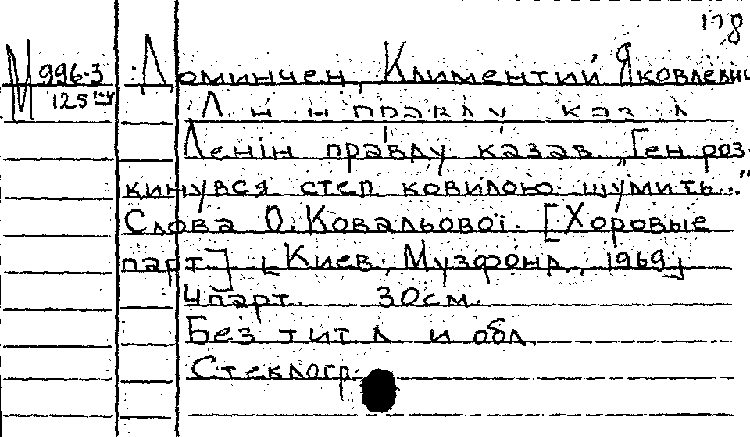 178
М 996-3
125
Доминчен, Климентий Яковлевич
Ленін правду казав
Ленін правду казав. „Ген роз-
кинувся степ, ковилою шумить..."
Слова О. Ковальової. [Хоровые
парт.] [Киев, Музфонд, 1969]
4 парт. 30см.
Без тит. л. и обл.
Стеклогр.